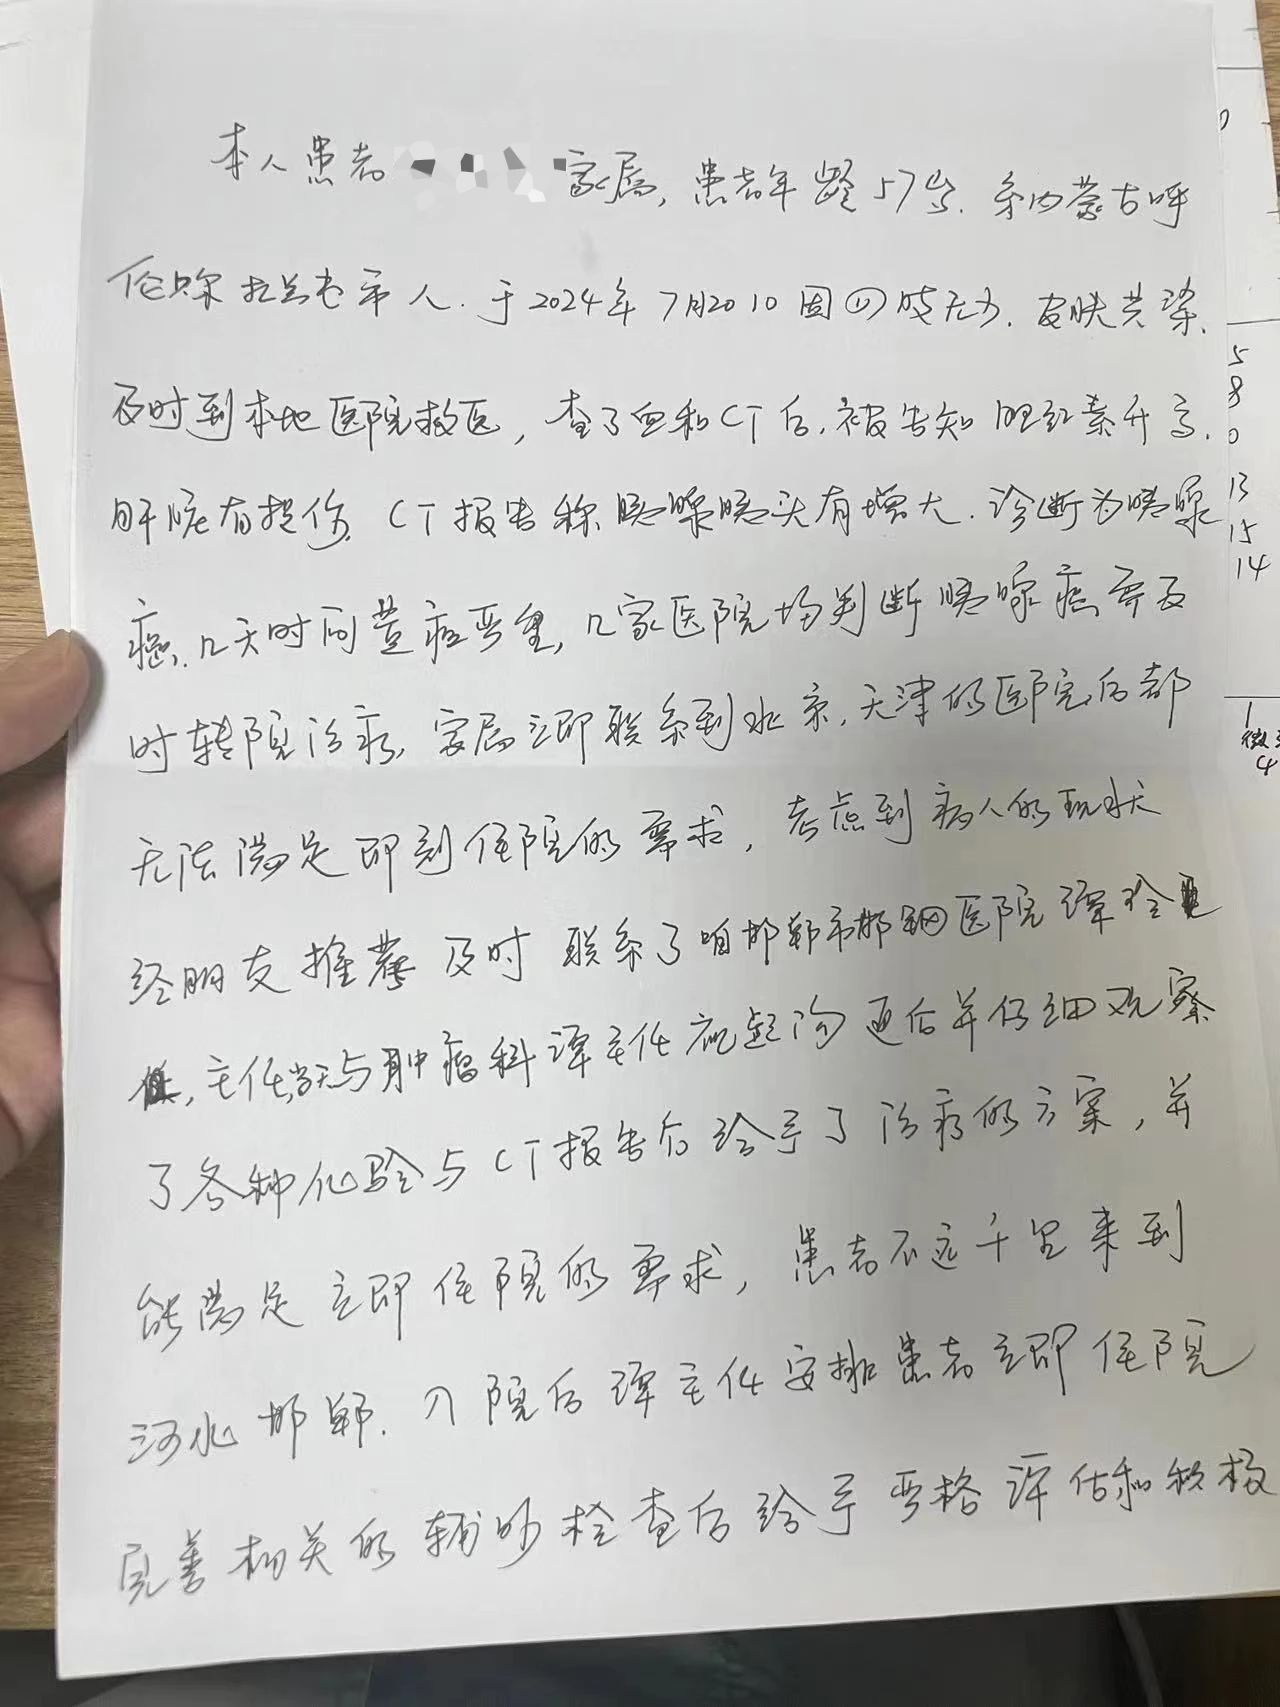 本人患者 家属，患者年龄57岁.系内蒙古呼
伦贝尔扎兰屯市人.于2024年7月20日因四肢无力.皮肤共染.
及时到本地医院救医，查了血和CT后.被告知胆红素升高.
肝脏有损伤.CT报告称胰腺胰头有增大.诊断为胰腺
癌.几天时间黄疸严重，几家医院均判断胰腺癌需及
时转院治疗，家属立即联系到北京.天津的医院后都
无法满足即刻住院的需求，考虑到病人的现状
经朋友推荐及时联系了咱邯郸市邯钢医院谭
主任，当天与肿瘤科谭主任沟通后并仔细观察
了各种化验与CT报告后给予了治疗的方案，并
能满足立即住院的需求，患者不远千里来到
河北邯郸.入院后谭主任安排患者立即住院
完善相关的辅助检查后给予严格评估和积极
5
8
0
13
15
14